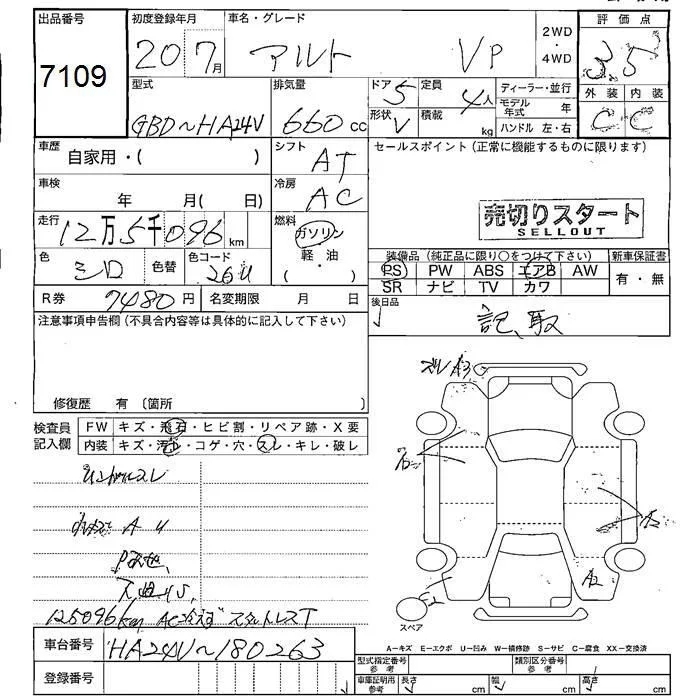 出品番号 初度登録年月 車名・グレード 2WD・4WD 評価点
7109 20 7月 アルト VP 3.5
型式 排気量 ドア 5 定員 4人 ディーラー・並行 外装 内装
GBD~HA24V 660cc 形状 V 積載 kg モデル年式 年 C C
ハンドル 左・右
車歴 自家用・( ) シフト AT セールスポイント(正常に機能するものに限ります)
車検 年 月( 日) 冷房 AC
売切りスタート
SELLOUT
走行 12万5千096km 燃料 ガソリン・軽・油( )
色 シロ 色替 色コード 26U
装備品(純正品に限り○をつけて下さい) 新車保証書
PS PW ABS エアB AW 有・無
SR ナビ TV カワ
R券 7480円 名変期限 月 日 後日品
記、取
注意事項申告欄(不具合内容等は具体的に記入して下さい)
修復歴 有〔箇所 〕
検査員記入欄 FW キズ・飛石・ヒビ割・リペア跡・X要
内装 キズ・汚れ・コゲ・穴・スレ・キレ・破レ
A3
A U
125096km AC冷えず スタットレスT
A2
E2
スペア
A-キズ E-エクボ U-凹み W-補修跡 S-サビ C-腐食 XX-交換済
車台番号 HA24V~180263
型式指定番号 参考 類別区分番号 参考
登録番号
車庫証明用 参考 長さ cm 幅 cm 高さ cm